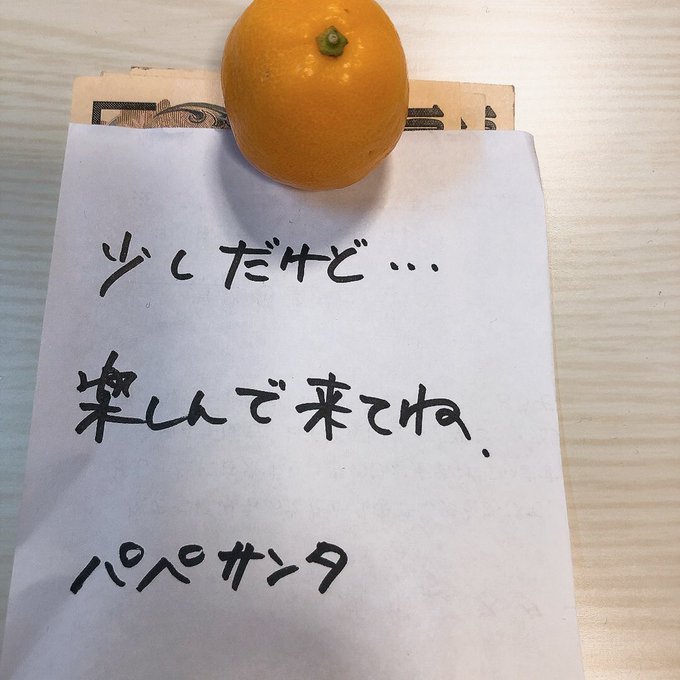 少しだけど…
楽しんで来てね.
パペサンタ